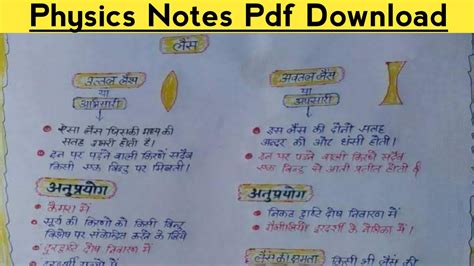 Physics Notes Pdf Download
लैंस
उत्तल लैंस
या
अभिसारी
ऐसा लैंस जिसकी मध्य की
सतह उभरी होती है।
इन पर पड़ने वाली किरणें सदैव
एक बिन्दु पर मिलती।
अनुप्रयोग
कैमरा में
सूर्य की किरणों को किसी बिन्दु
विशेष पर संकेन्द्रित करने के लिये
दूरदृष्टि दोष निवारण में
अवतल लैंस
या
अपसारी
इस लैंस की दोनों सतह
अन्दर की ओर धंसी होती।
इन पर पड़ने वाली किरणें सदैव
एक बिन्दु से आती प्रतीत होती है
अनुप्रयोग
निकट दृष्टि दोष निवारण में
गैलीलियो दूरदर्शी के नेत्रिका में।
लैंस की क्षमता
किसी भी लैंस की